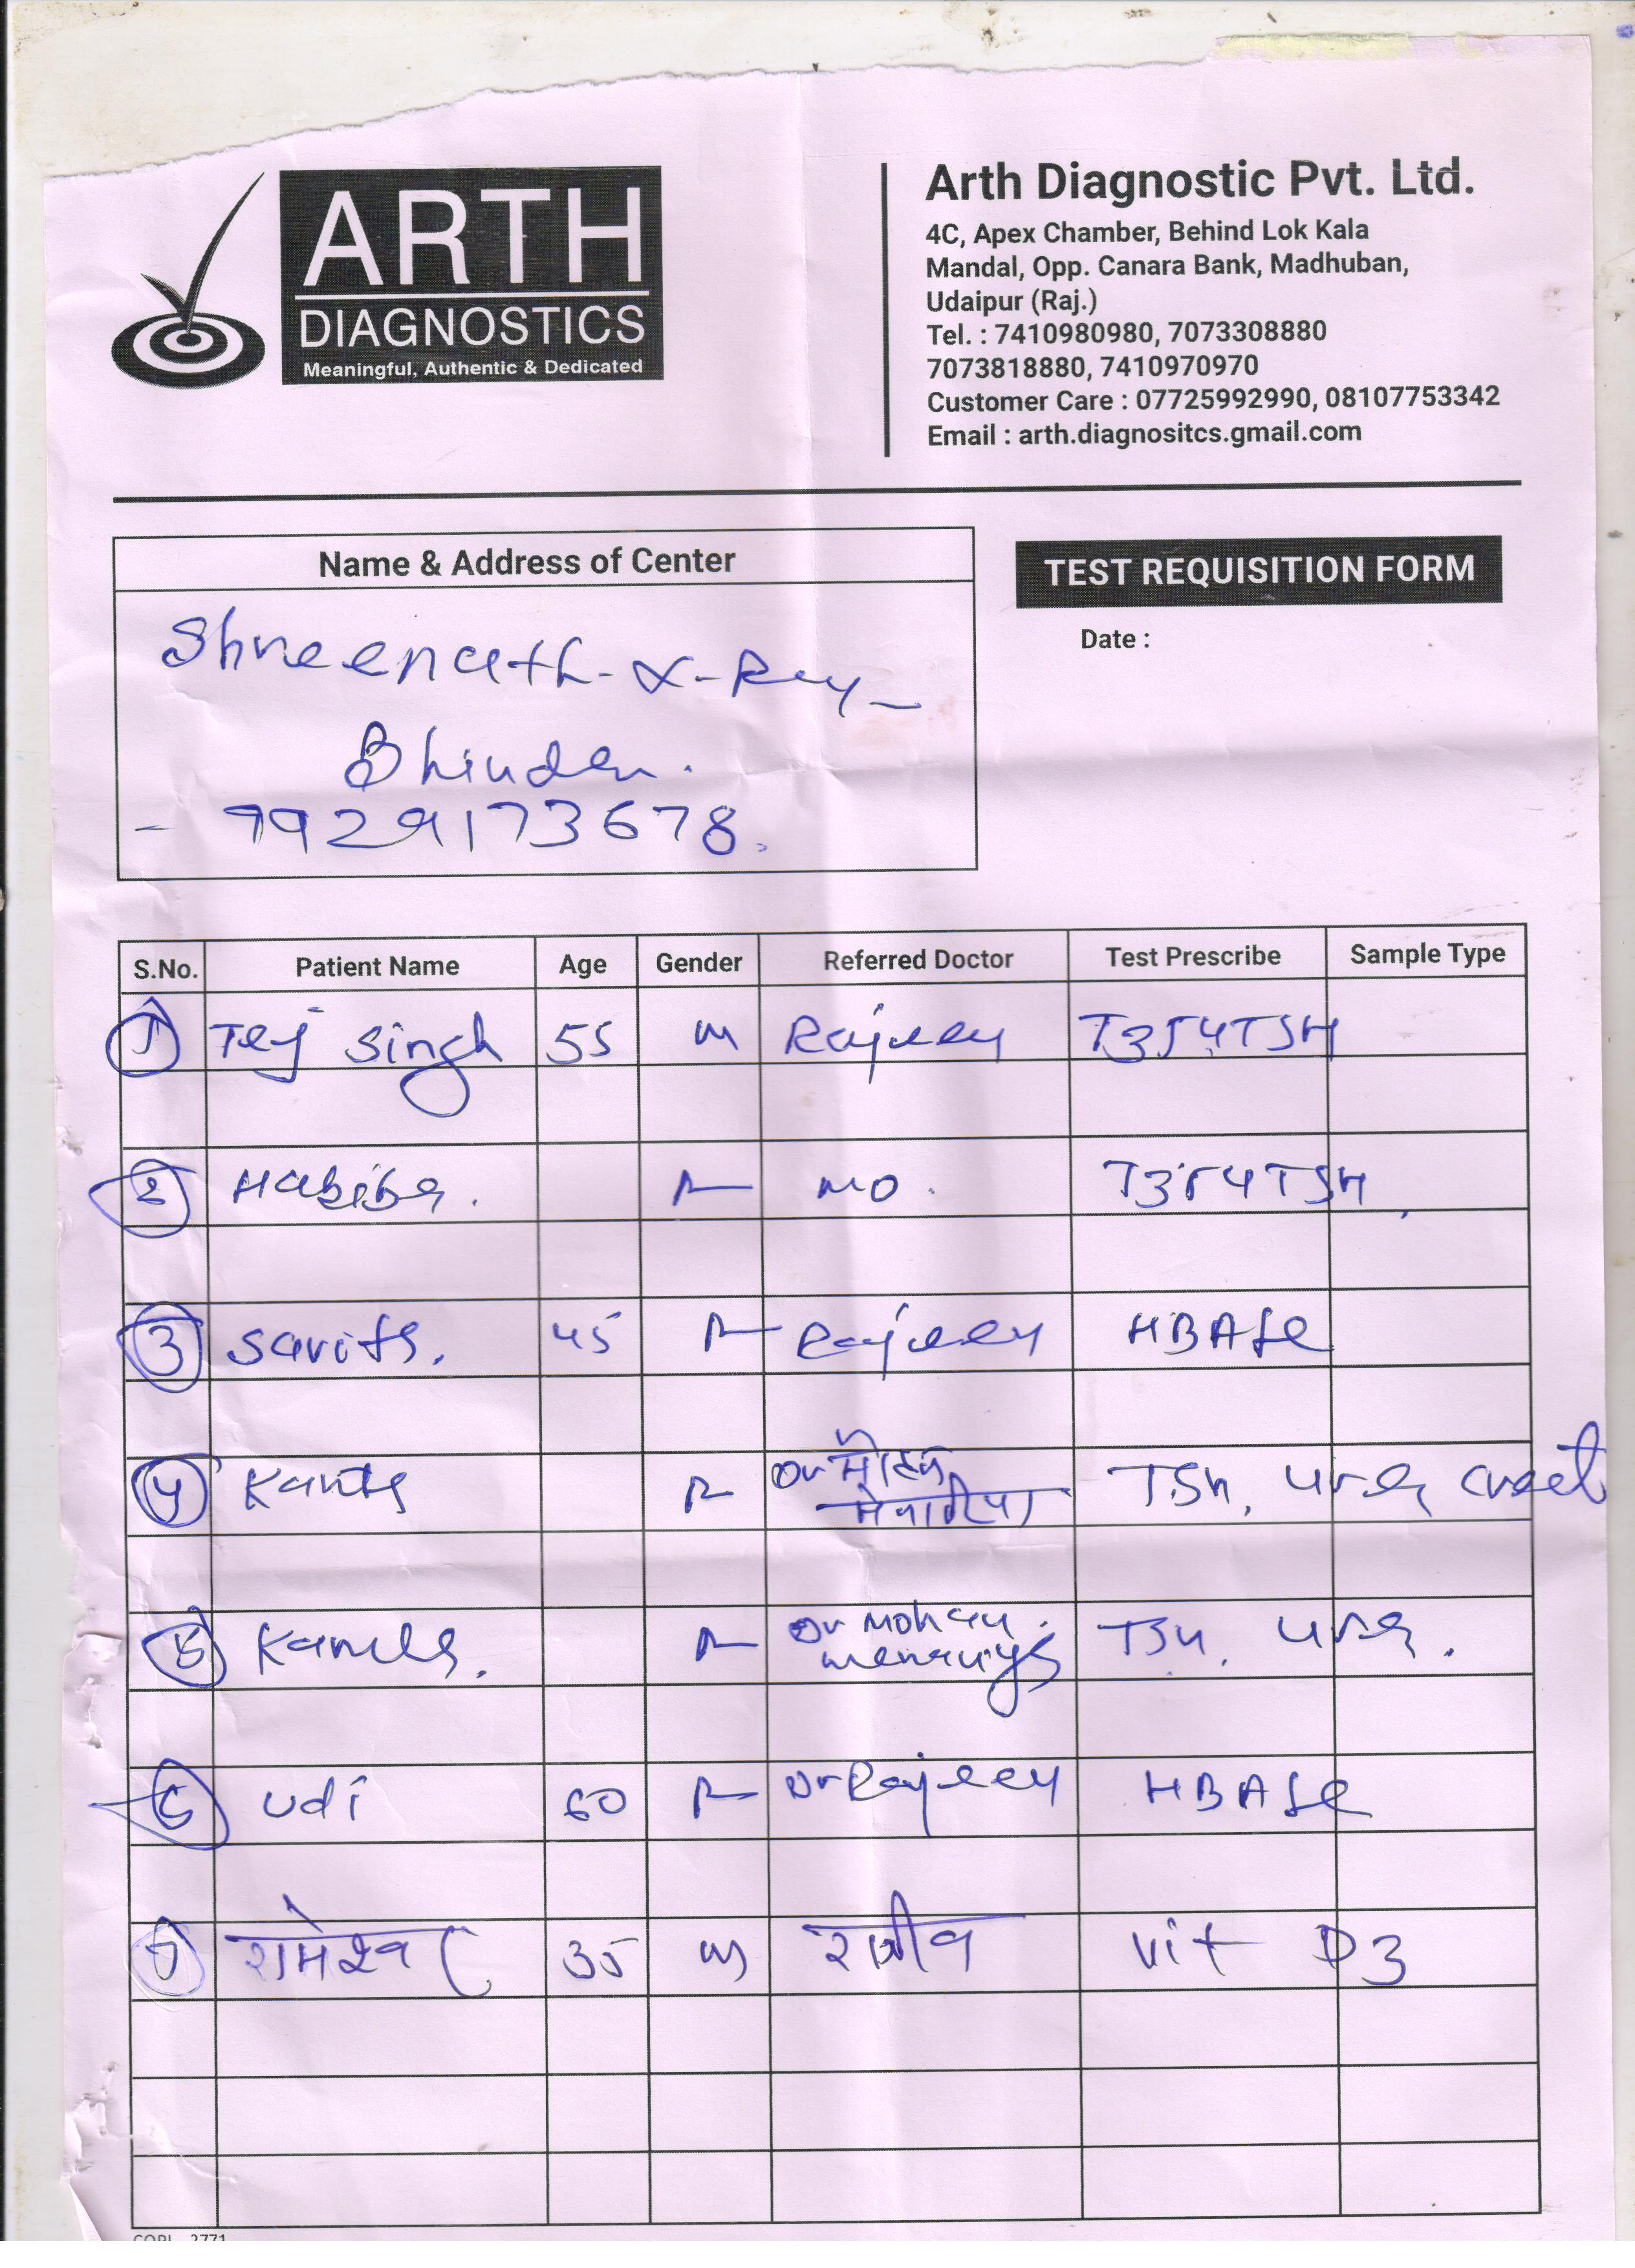 ARTH
DIAGNOSTICS
Meaningful, Authentic & Dedicated
Arth Diagnostic Pvt. Ltd.
4C, Apex Chamber, Behind Lok Kala
Mandal, Opp. Canara Bank, Madhuban,
Udaipur (Raj.)
Tel. : 7410980980, 7073308880
7073818880, 7410970970
Customer Care : 07725992990, 08107753342
Email : arth.diagnositcs.gmail.com
Name & Address of Center
Shreenath-X-Ray-
Bhinder.
- 9929173678.
TEST REQUISITION FORM
Date :
S.No. Patient Name Age Gender Referred Doctor Test Prescribe Sample Type
1 Tej Singh 55 M Rajeev T3T4TSH
2 Habiba. F MO. T3T4TSH
3 Savita. 45 F Rajeev HBA1c
4 Kanta F Dr मोहन मेनारिया TSH, Urea, creat
5 Kamla. F Dr Mohan. menariya TSH, Urea.
6 Udi 60 F Dr Rajeev HBA1c
7 रामेश्वर 35 M राजीव Vit D3